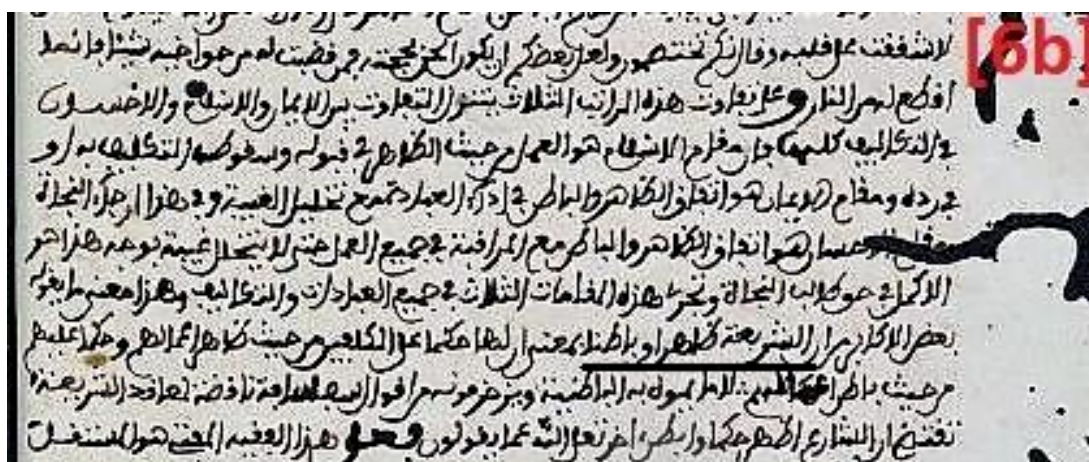 [6b]
لا شققت على قلبه وقال إنكم تختصمون ولعل بعضكم ان يكون الحن بحجته فمن قضيت له من حق اخيه بشيء فإنما
أقطع له من النار وعلى تفاوت هذه المراتب الثلاث يتنزل التفاوت بين الايمان والاسلام والاحسان
في التكاليف كلها فان مقام الاسلام هو العمل من حيث الظاهر في قبوله وسقوط التكليف به او
في رده ومقام الايمان هو اتفاق الظاهر والباطن في اداء العبادة مع تخلل الغيبة وفي هذا رجاء النجاة
ومقام الاحسان هو اتفاق الظاهر والباطن مع المراقبة في جميع العمل حتى لا يتخلل غيبة بوجه هذا هو
الاكمل في حق طالب النجاة وتجري هذه المقامات الثلاث في جميع العبادات والتكاليف وهذا معنى ما يقوله
بعض الاكابر من ان للشريعة ظاهرا وباطنا بمعنى ان لها حكما على المكلفين من حيث ظاهر اعمالهم وحكما عليهم
من حيث باطن لا ما يموه به الباطنية ويزخرفونه من اقوال ناقضة الشريعة
تقتضي ان الشارع اظهر حكما وابطن اخر تعالى الله عما يقولون فصل هذا الفقيه المفتي هو